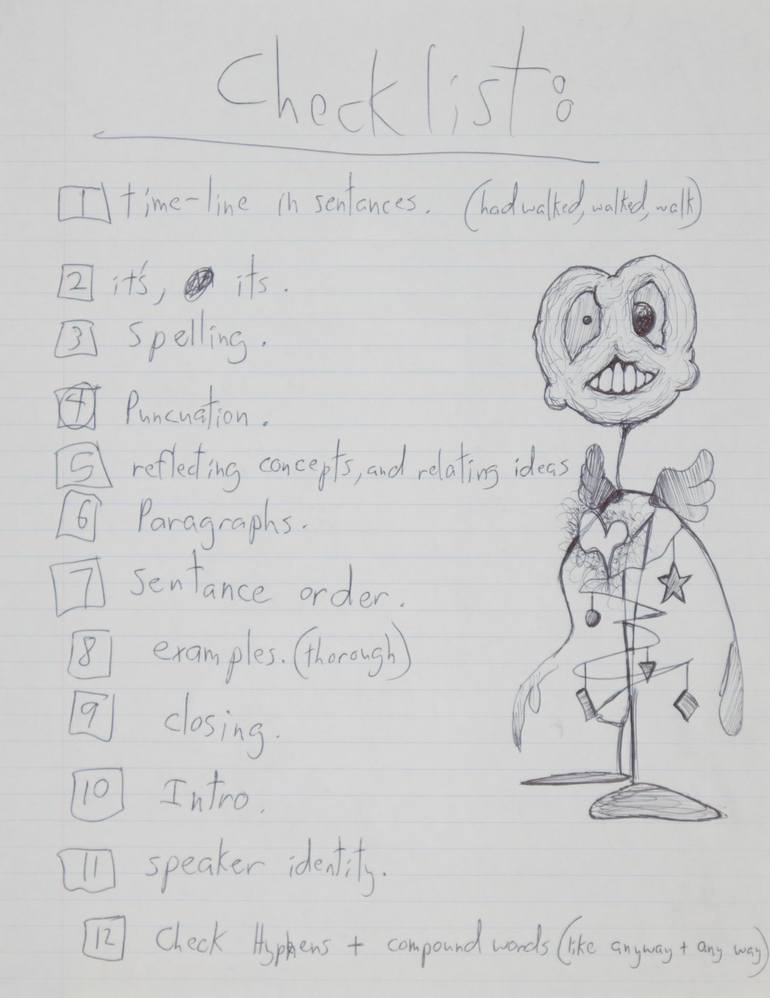 Checklist:
1 time-line in sentances. (had walked, walked, walk)
2 it's, its.
3 Spelling.
4 Puncuation.
5 reflecting concepts, and relating ideas
6 Paragraphs.
7 Sentance order.
8 examples. (thorough)
9 closing.
10 Intro.
11 speaker identity.
12 Check Hyphens + compound words (like anyway + any way)